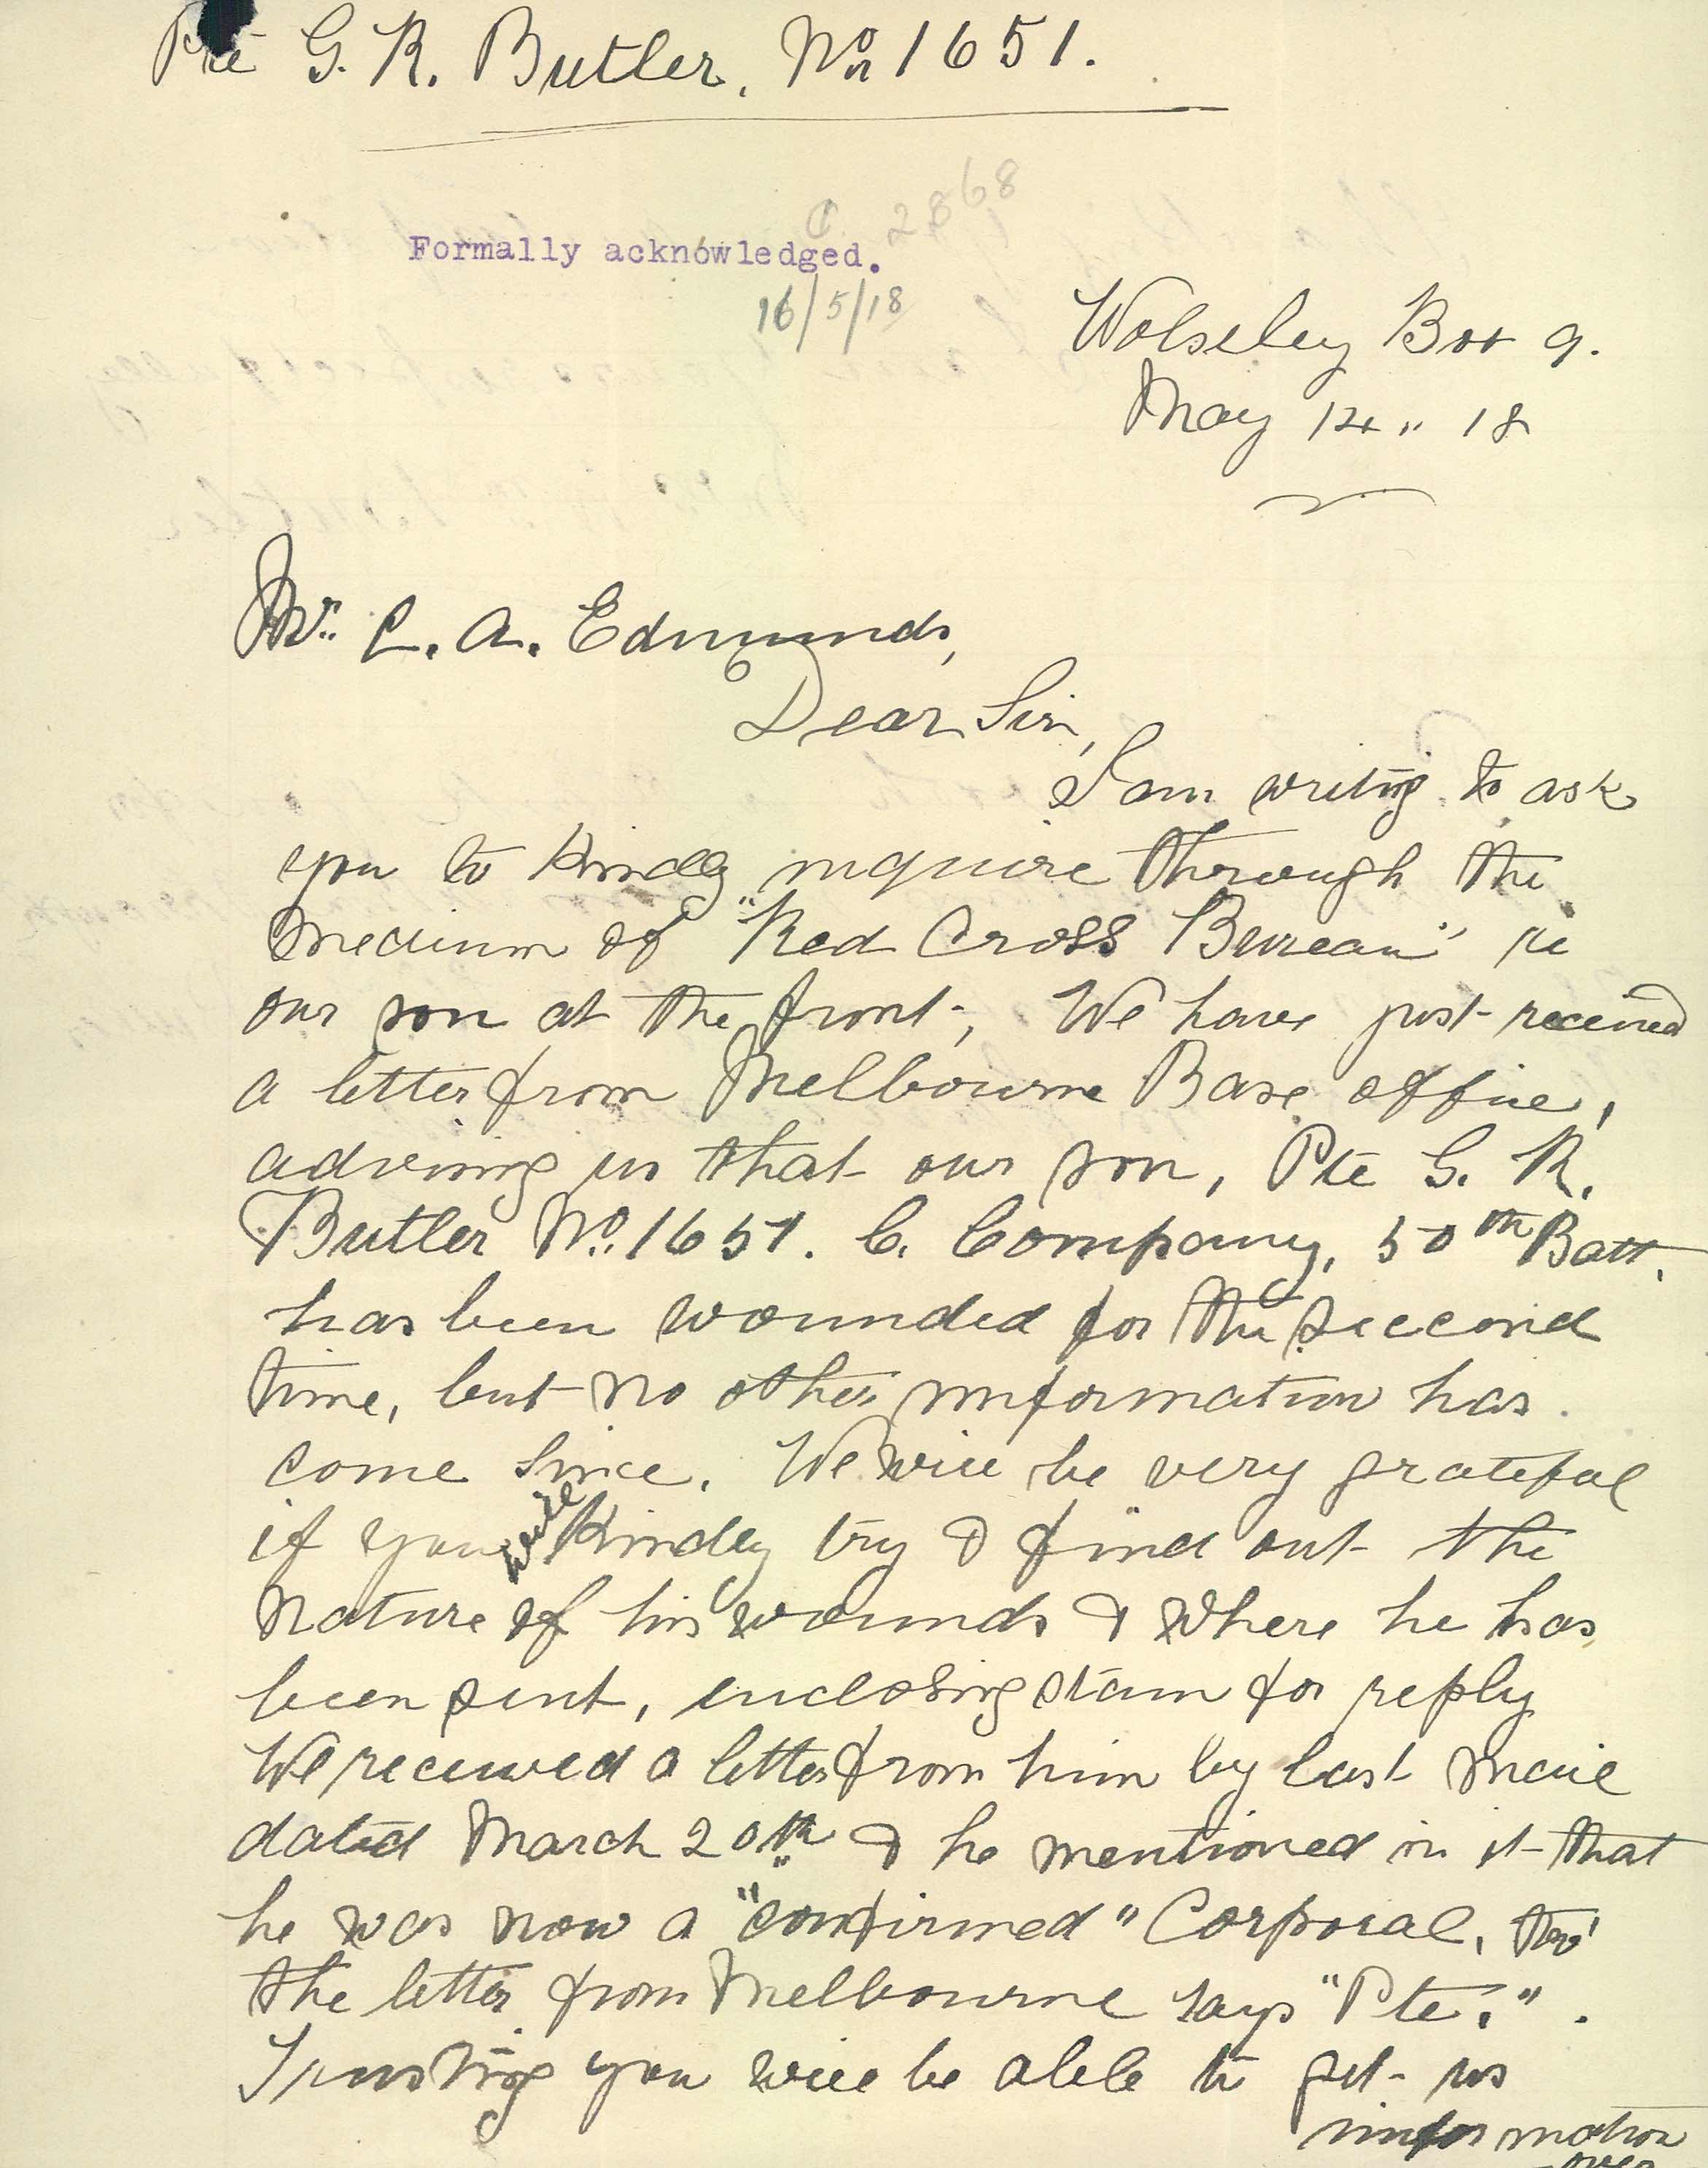 Pte G. R. Butler. No 1651.
C. 2868
Formally acknowledged.
16/5/18
Wolseley Box 9.
May 14" 18
Mr. C. A. Edmunds,
Dear Sir,
I am writing to ask
you to kindly inquire through the
medium of "Red Cross Bureau" re
our son at the front, We have just received
a letter from Melbourne Base office,
advising us that our son, Pte G. R.
Butler No. 1651. C. Company, 50th Batt.
has been wounded for the seccond
time, but no other imformation has
come since. We will be very grateful
if you will kindly try & find out the
nature of his wounds & where he has
been sent, enclosing stam for reply
We received a letter from him by last mail
dated March 20th & he mentioned in it that
he was now a "confirmed" Corporal, tho'
the letter from Melbourne says "Pte.".
Trusting you will be able to get us
information
over